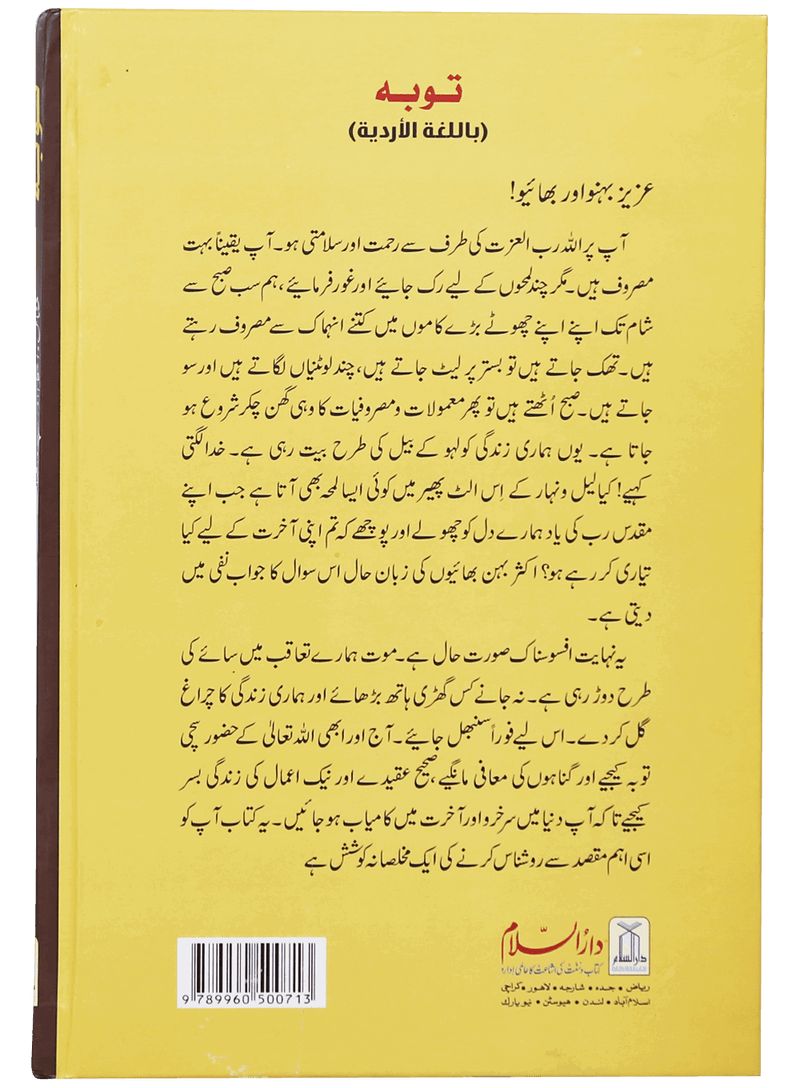 توبہ
(باللغة الأردية)
عزیز بہنو اور بھائیو!
آپ پر اللہ رب العزت کی طرف سے رحمت اور سلامتی ہو۔ آپ یقیناً بہت
مصروف ہیں۔ مگر چند لمحوں کے لیے رک جائیے اور غور فرمائیے، ہم سب صبح سے
شام تک اپنے اپنے چھوٹے بڑے کاموں میں کتنے انہماک سے مصروف رہتے
ہیں۔ تھک جاتے ہیں تو بستر پر لیٹ جاتے ہیں، چند لوٹنیاں لگاتے ہیں اور سو
جاتے ہیں۔ صبح اُٹھتے ہیں تو پھر معمولات و مصروفیات کا وہی گھن چکر شروع ہو
جاتا ہے۔ یوں ہماری زندگی کولہو کے بیل کی طرح بیت رہی ہے۔ خدا لگتی
کہیے! کیا لیل و نہار کے اِس الٹ پھیر میں کوئی ایسا لمحہ بھی آتا ہے جب اپنے
مقدس رب کی یاد ہمارے دل کو چھو لے اور پوچھے کہ تم اپنی آخرت کے لیے کیا
تیاری کر رہے ہو؟ اکثر بہن بھائیوں کی زبان حال اس سوال کا جواب نفی میں
دیتی ہے۔
یہ نہایت افسوسناک صورت حال ہے۔ موت ہمارے تعاقب میں سائے کی
طرح دوڑ رہی ہے۔ نہ جانے کس گھڑی ہاتھ بڑھائے اور ہماری زندگی کا چراغ
گل کر دے۔ اس لیے فوراً سنبھل جائیے۔ آج اور ابھی اللہ تعالیٰ کے حضور سچی
توبہ کیجیے اور گناہوں کی معافی مانگیے، صحیح عقیدے اور نیک اعمال کی زندگی بسر
کیجیے تاکہ آپ دنیا میں سرخرو اور آخرت میں کامیاب ہو جائیں۔ یہ کتاب آپ کو
اسی اہم مقصد سے روشناس کرنے کی ایک مخلصانہ کوشش ہے
دارالسّلام
دارالسلام
DARUSSALAM
کتاب و سُنّت کی اشاعت کا عالمی ادارہ
ریاض • جدہ • شارجہ • لاہور • کراچی
اسلام آباد • لندن • ہیوسٹن • نیویارک
9 789960 500713